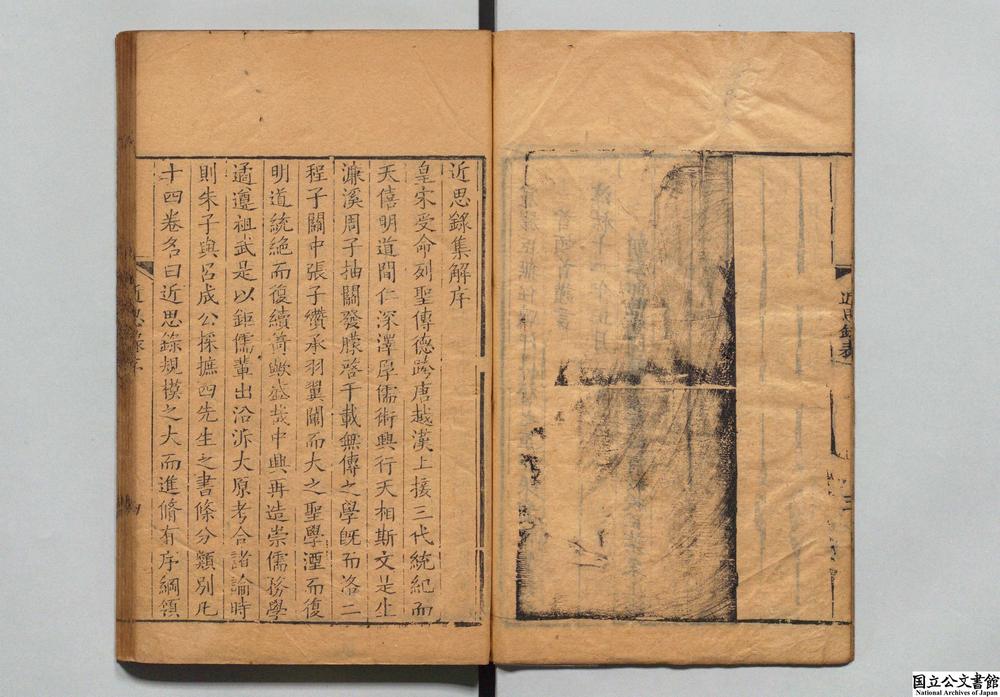 近思錄表
三
近思錄集解序
皇宋受命列聖傳德跨唐越漢上接三代統紀而
天僖明道間仁深澤厚儒術興行天相斯文是生
濂溪周子抽關發朦啓千載無傳之學旣而洛二
程子關中張子纘承羽翼闢而大之聖學湮而復
明道統絶而復續猗歟盛哉中興再造崇儒務學
遹遵祖武是以鉅儒輩出沿泝大原考合諸論時
則朱子與呂成公採摭四先生之書條分類別凡
十四卷名曰近思錄規模之大而進脩有序綱領
近思錄序
国立公文書館
National Archives of Japan